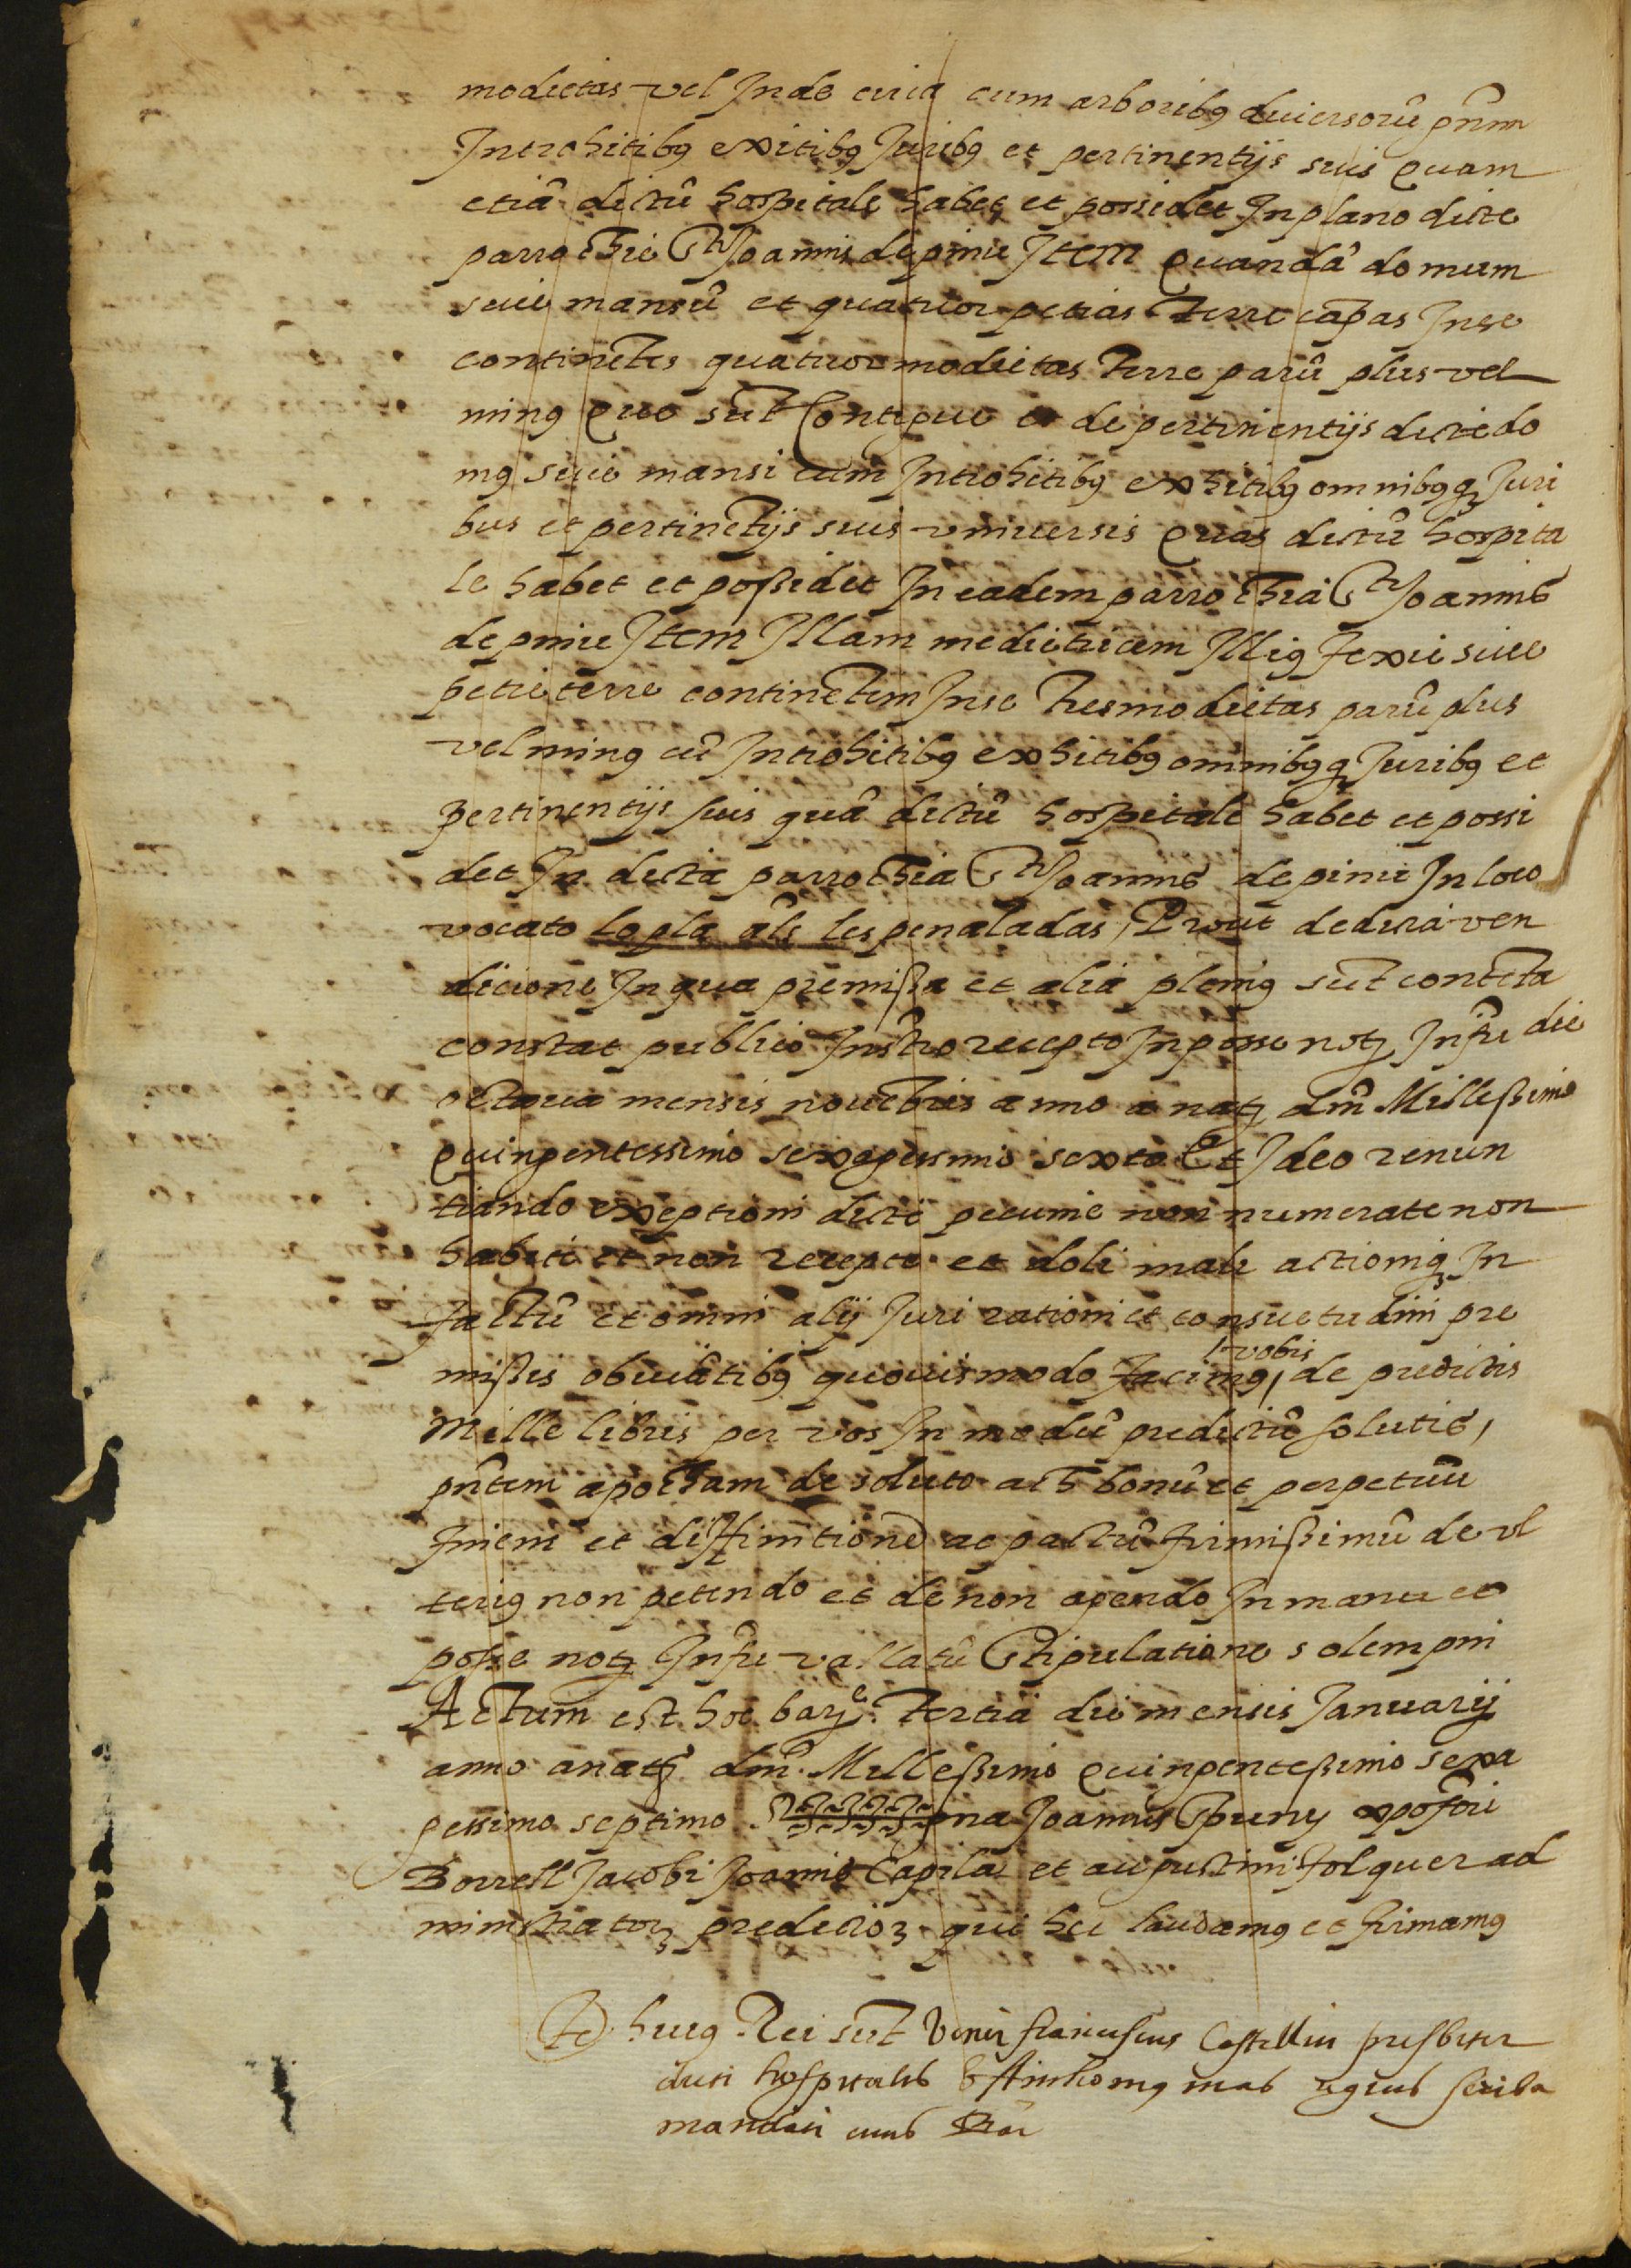 modietas vel Inde circa cum arboribꝯ diuersorũ gñum
Introhitibꝯ exitibꝯ Juribꝯ et pertinentijs suis quam
etiã dictũ hospitale habet et possidet In plano dicte
parrochie Sti Joannis de pinu Item quandã domum
siue mansũ et quatuor petias terre Inse
continẽtes quatuor modietas terre parũ plus vel
minꝯ que sũt Contigue et de pertinentijs dicte do
mꝯ siue mansi cum Introhitibꝯ exhitibꝯ omnibꝯqꝫ Juri
bus et pertinẽtijs suis vniuersis quas dictũ hospita
le habet et possidet In eadem parrochia Sti Joannis
de pinu Item Illam medietatem Illiꝯ fexie siue
petie terre continẽtem Inse tres modietas parũ plus
vel minꝯ cũ Introhitibꝯ exhitibꝯ omnibꝯqꝫ Juribꝯ et
pertinentijs suis quã dictũ hospitale habet et possi
det In dicta parrochia Sti Joannis de pinu In loco
vocato lo pla als les penaladas, Prout de dicta ven
dicione In qua premissa et alia pleniꝯ sũt contẽta
constat publico Instro recepto In posse notꝫ Infri die
octaua mensis nouẽbris anno a natꝫ dñi Millessimo
quingentessimo sexagessimo sexto Et Ideo renun
tiando exeptioni dicte pecunie non numerate non
habite et non recepte et doli mali actioniqꝫ In
factũ et omni alij Juri rationi et consuetudini pre
missis obuiãtibꝯ quouismodo facimꝯ, vobis de predictis
Mille libris per vos In modũ predictũ solutis,
pñtem apocham de soluto ac bonũ et perpetuũ
finem et diffinitionẽ ac pactũ firmissimũ de vl
teriꝯ non petendo et de non agendo In manu et
posse notꝫ Infri vallatũ Stipulatione solempni
Actum est hoc barꝫe. tertia die mensis Januarij
anno a natꝫ dñi Millessimo quingentessimo sexa
gessimo septimo Sig na Joannis xpofori
Borrell Jacobi Joannis Capila et augustini folquer ad
ministratorꝫ predictoꝫ qui hec laudamꝯ et firmamꝯ
Te huiꝯ Rei sũt Venlis franciscus Castellui presbiter
dicti hospitalis &amp; Anthoniꝯ mas scriba
mandati